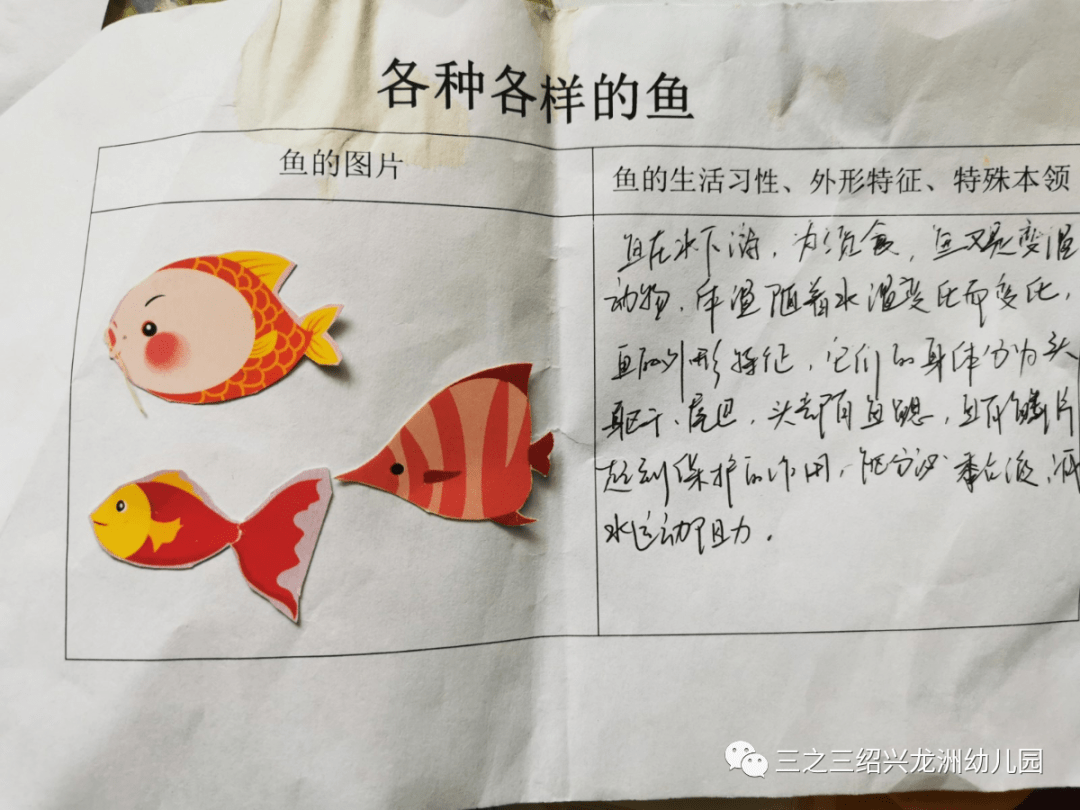 各种各样的鱼
鱼的图片
鱼的生活习性、外形特征、特殊本领
鱼在水下游，为了觅食，鱼又是变温
动物，体温随着水温变化而变化，
鱼的外形特征，它们的身体分为头
躯干、尾巴，头部有鱼鳃，且有鳞片
起到保护的作用，能分泌黏液，减
水运动阻力。
三之三绍兴龙洲幼儿园